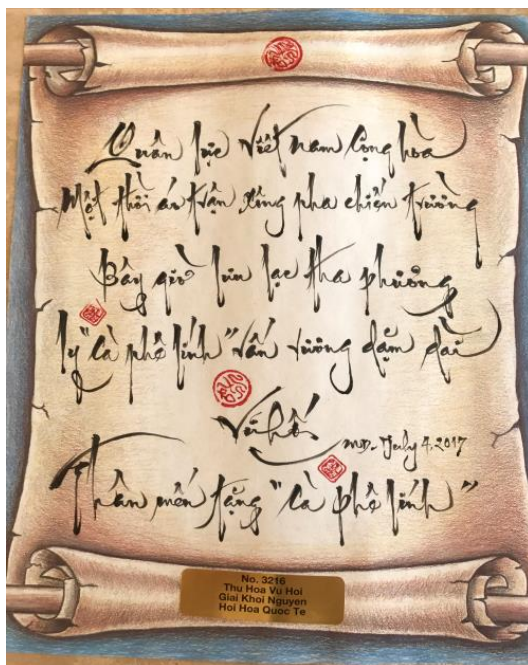 Quân lực Việt Nam Cộng hòa
Một thời ác trận xông pha chiến trường
Bây giờ lưu lạc tha phương
Ly "Cà phê lính" vấn vương dặm dài
Vũ Hối
MD. July 4, 2017
Thân mến tặng "Cà phê lính"
No. 3216
Thu Hoa Vu Hoi
Giai Khoi Nguyen
Hoi Hoa Quoc Te